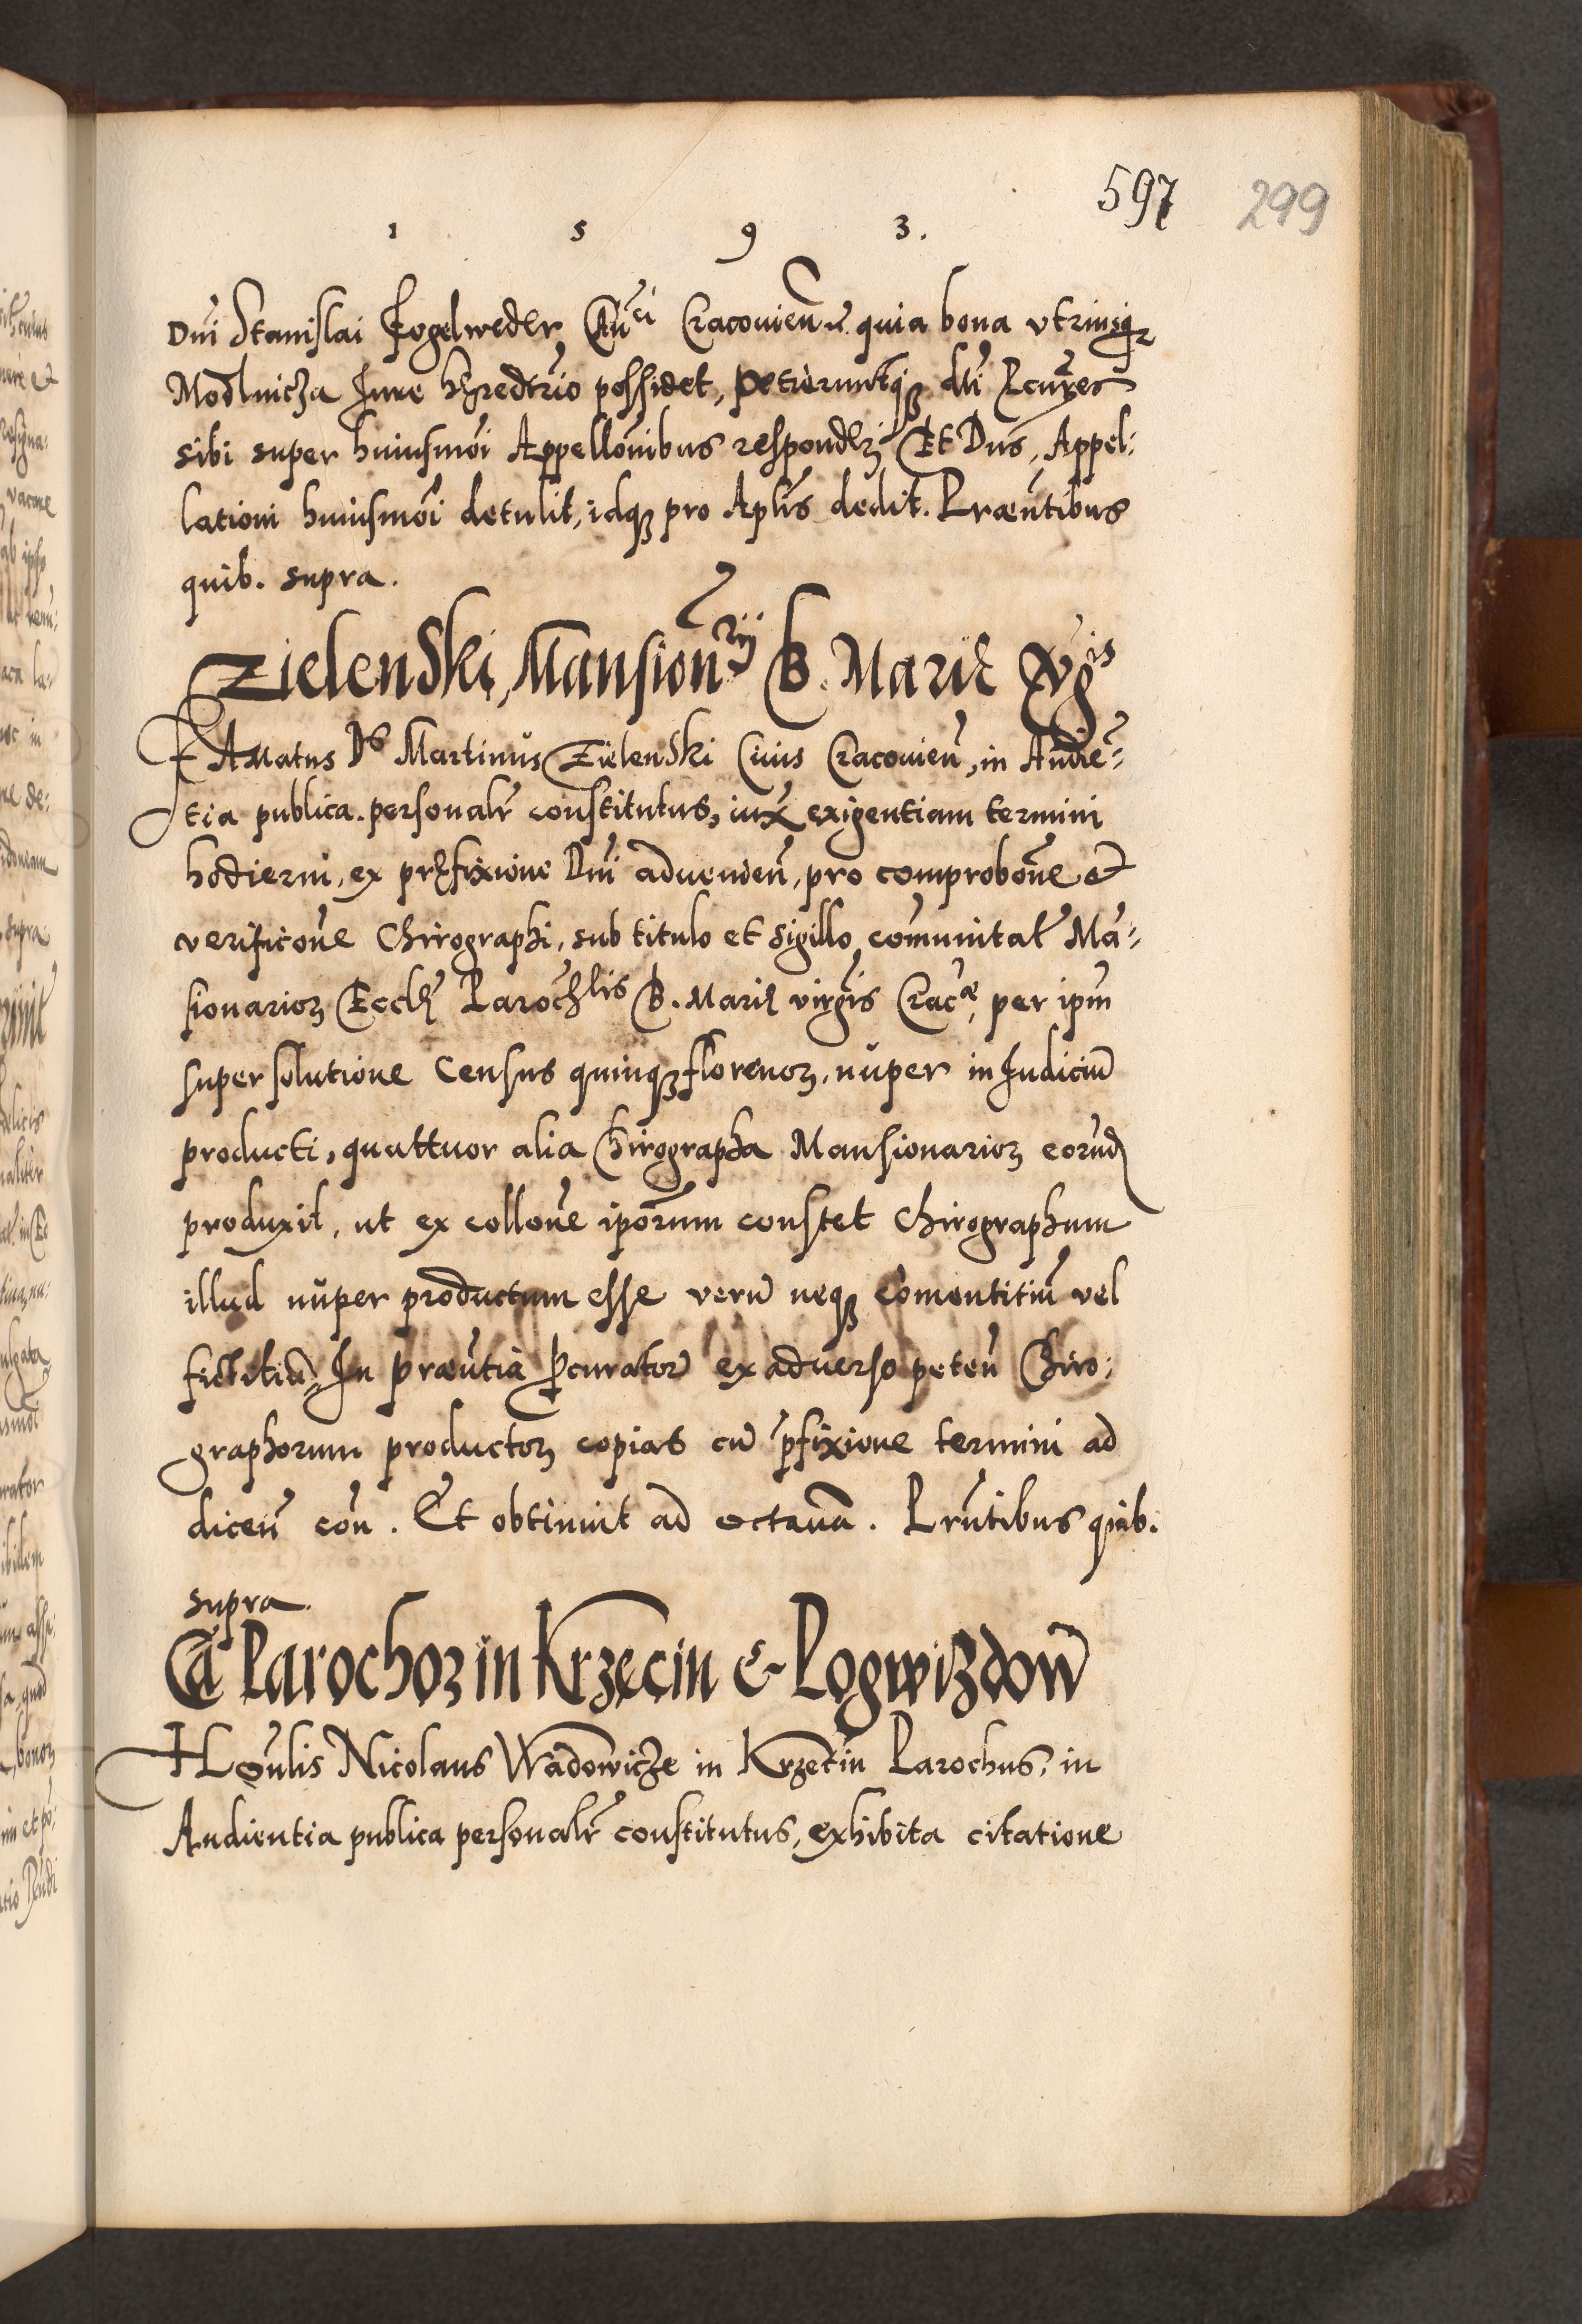 597 299
1 5 9 3.
Dni Stanislai Fogelweder Canci Cracovien̄. quia bona utriusq̨
Modlnicza Iure hęredrio possidet, petieruntq̨ dti Pcūres
sibi super huiusmoī Appelloībus respondęri Et Dns, Appel:
lationi huiusmoī detulit, idq̨ pro Aplis dedit. Praeūtibus
quib. supra.
Zielenski, Mansionrij B. Marię Vgis
FAmatus Ds Martinus Zielenski Civis Cracovien̄, in Audiē:
tia publica personalr̄ constitutus, iux̄ exigentiam termini
hodierni, ex pręfixione Dni advenien̄, pro comprobōne et
verificōne Chirographi, sub titulo et sigillo com̄unitat̄ Mā:
sionarioꝝ Eccłę Parochlis B. Marię virgīs Cracae, per ipm̄
super solutione Census quinq̨ florenoꝝ, nuper in Iudiciū
producti, quattuor alia Chirographa Mansionarioꝝ eorūd
produxit, ut ex collōne ipōrum constet Chirographum
illud nuper productum esse verū neq̨ com̄entitiū vel
fictitiū. In praeūtia Pcuratoȓ ex adverso peten̄ Chiro:
graphorum productoꝝ copias cū p̄fixione termini ad
dicen̄ con̄. Et obtinuit ad octavā. Prūtibus quib.
supra.
Ca Parochoꝝ in Krzęcin & Pogwizdow
HOnlis Nicolaus Wadowicze in Krzęcin Parochus, in
Audientia publica personalr̄ constitutus, exhibita citatione